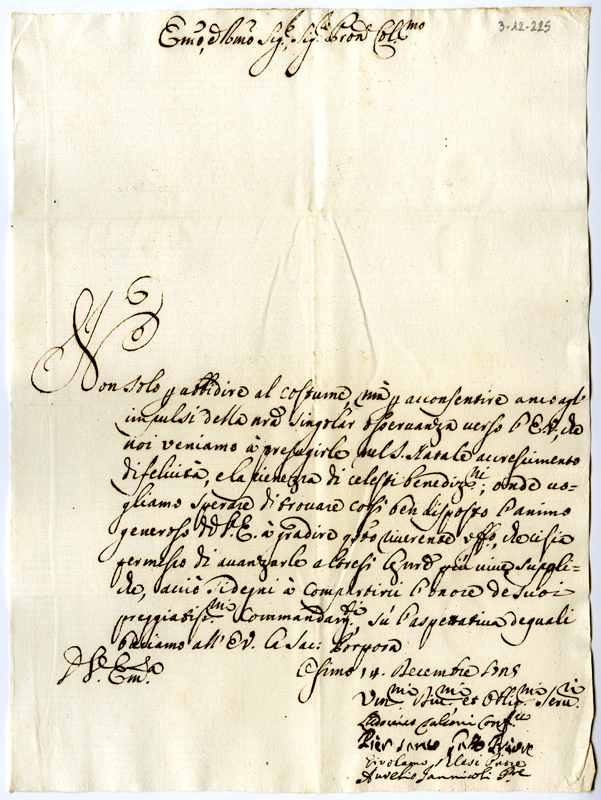 3-12-225
Emo, e Rmo Sig.r Sig.r Pron Coll.mo
Non solo p ubbidire al costume, mà p acconsentire anco agl'
impulsi della nrã singolar osseruanza uerso l'E.V., che
noi veniamo à presagirle nel S. Natale accrescimento
di felicità, e la pienezza di celesti benediz.ni; onde uo=
gliamo sperare di trouare così ben disposto l'animo
generoso dell'E. à gradire q̃sto riuerente uffo, che ci sia
permesso di auanzarle altresì le nrẽ più uiue suppli=
che, acciò si degni à compartirci l'onore de suoi
preggiatiss.mi Commandam.ti sù l'aspettatiua de quali
baciamo all'E.V. la Sac: Porpora
D. V. Em.za
Osimo 14. Decembre
Um.mi Diu.mi et Obblig.mi Seru.ri
Lodouico
Pier
Girolamo
Aurelio Iannicoli Pre